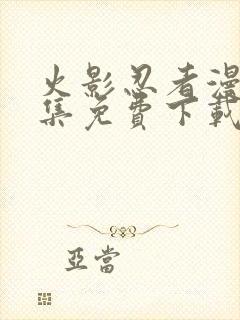 火影忍者漫
集免費下載
亞當